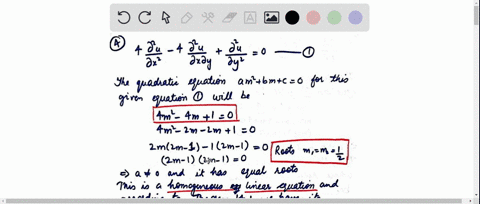 A 4 ∂²u/∂x² - 4 ∂²u/∂x∂y + ∂²u/∂y² = 0 —— ①
The quadratic equation am²+bm+c=0 for this
given equation ① will be
4m²-4m+1=0
4m²-2m-2m+1=0
2m(2m-1)-1(2m-1)=0
(2m-1)(2m-1)=0
Roots m₁=m₂=1/2
⇒ a≠0 and it has equal roots
This is a homogeneous linear equation and